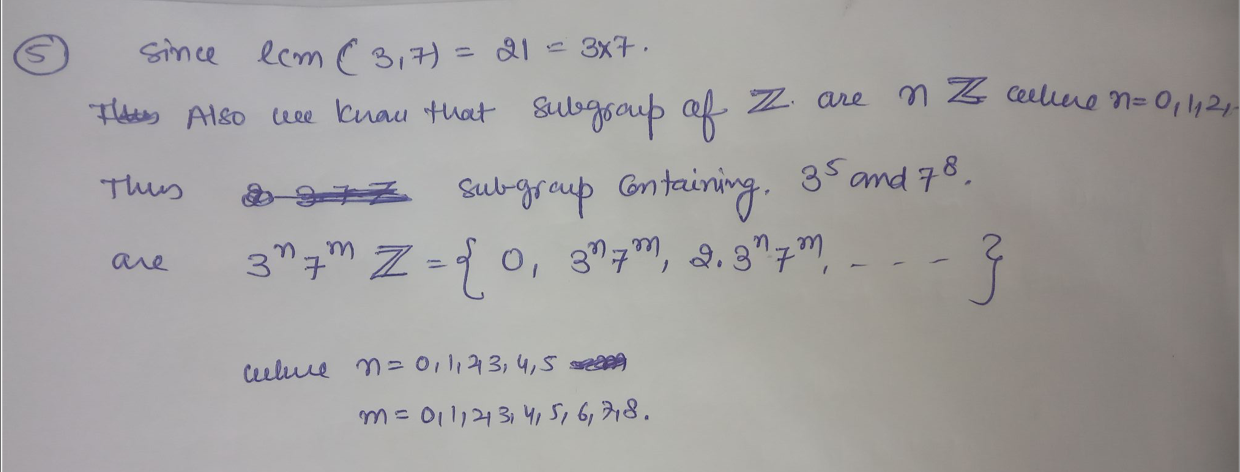 ⑤ Since lcm (3,7) = 21 = 3x7.
Also we know that subgroup of ℤ are n ℤ where n= 0,1,2,
Thus subgroup Containing. 3⁵ and 7⁸.
are 3ⁿ7ᵐ ℤ = { 0, 3ⁿ7ᵐ, 2.3ⁿ7ᵐ, - - - }
where n= 0,1,2,3,4,5
m= 0,1,2,3,4,5,6,7,8.